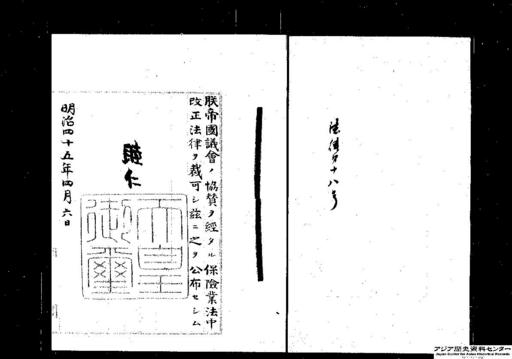 法律第十八号
朕帝國議會ノ協賛ヲ經タル保險業法中
改正法律ヲ裁可シ茲ニ之ヲ公布セシム
睦仁
天皇
御璽
明治四十五年四月六日
アジア歴史資料センター
Japan Center for Asian Historical Records